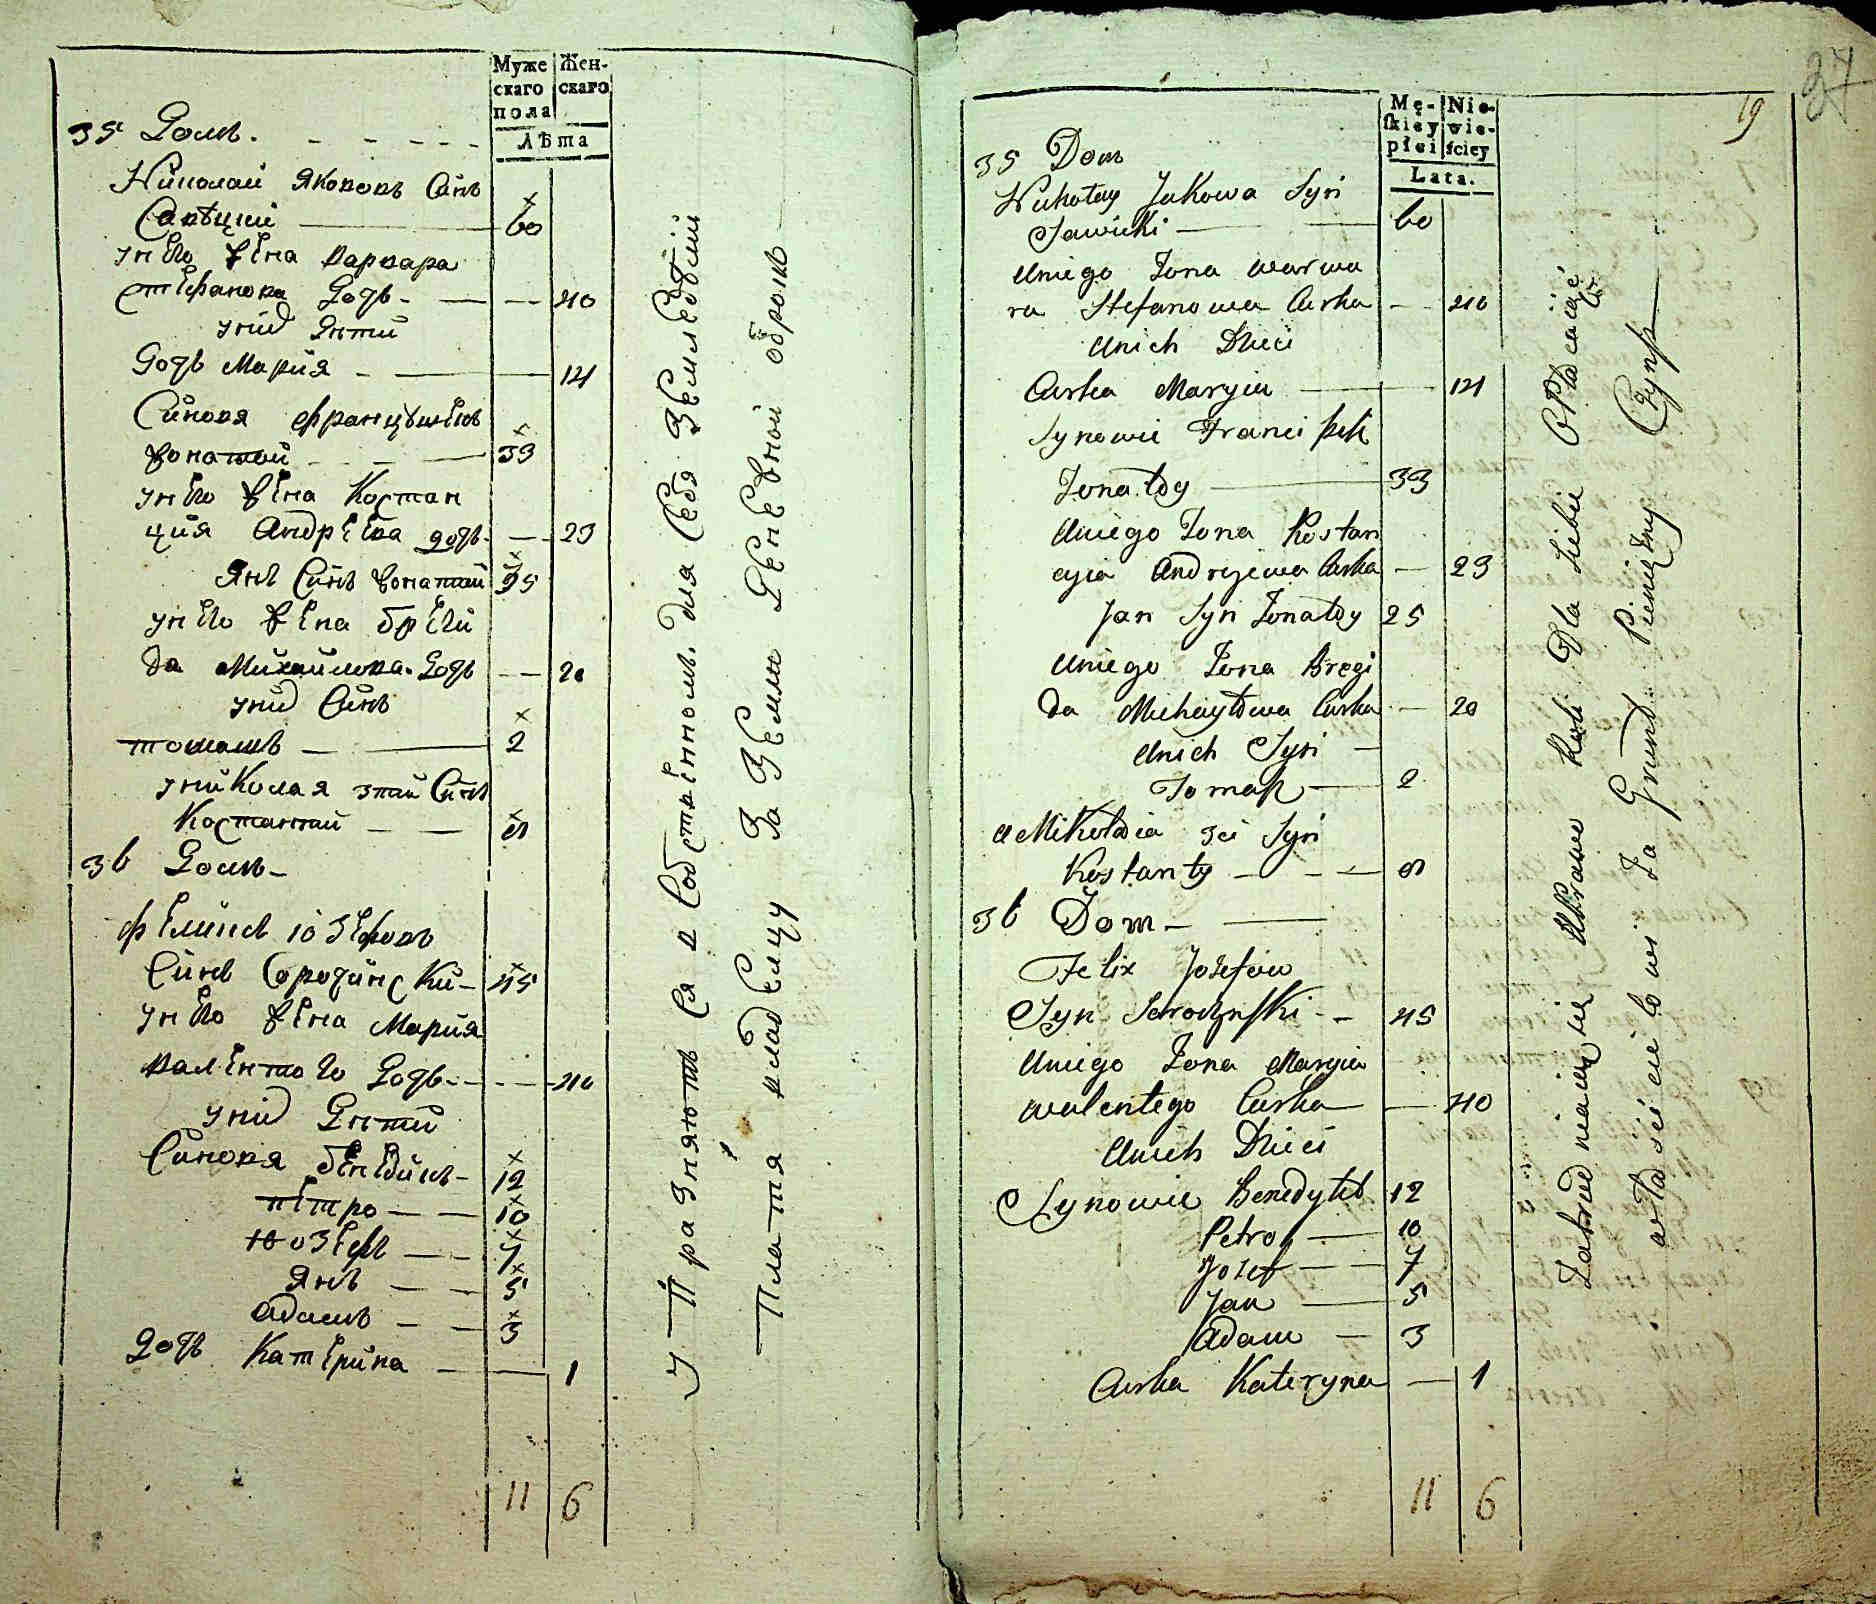 Муже Жен-
скаго скаго
пола
Лѣта
35 Домъ.
Николай Якововъ Синъ
Савѣцкий 60
унего жена варвара
стефанова Дочь 40
унид Дѣти
Дочь Мария 14
Синовя францѣшекъ
жонатий 33
унего жена Костан
ция Андреева дочь 23
Янъ Синъ жонатий 25
унего жена бреги
да Михайлова Дочь 20
унид Синъ
томашъ 2
униколая зтий Синъ
Костантий 8
36 Домъ
феликсъ іозефовъ
Синъ Сородинский 45
унего жена Мария
валентого Дочь 40
унид Дѣти
Синовя бенедиктъ 12
петро 10
юозефъ 7
Янъ 5
адамъ 3
дочь Катерина 1
11 6
Упразняютъ ся в Собственномъ для Себя Земледѣлии
Платя владелцу За Землю Денежной оброкъ
27
19
Mę- Nie-
ſkiey wie-
płci ſciey
Lata.
35 Dom
Nikołay Jakowa Syn
Sawicki 60
Uniego Żona warwa
ra Stefanowa Curka 40
Unich Dzieci
Curka Maryia 14
Synowie Franciszek
Żonaty 33
Uniego Żona Kostan
cyia Andrzejewa Curka 23
Jan Syn Żonaty 25
Uniego Żona Bregi
da Michayłowa Curka 20
Unich Syn
Tomasz 2
u Mikołaia zci Syn
Kostanty 8
36 Dom
Felix Jozefow
Syn Sorodzinſki 45
Uniego Żona Maryia
walentego Curka 40
Unich Dzieci
Synowie Benedykt 12
Petro 10
Jozef 7
Jan 5
Adam 3
Curka Kateryna 1
11 6
Zatrudniaiąsie Uprawą Roli Dla Siebie Opłacaiąc
właścicielowi Za Grunt Pieniężny Czynsz